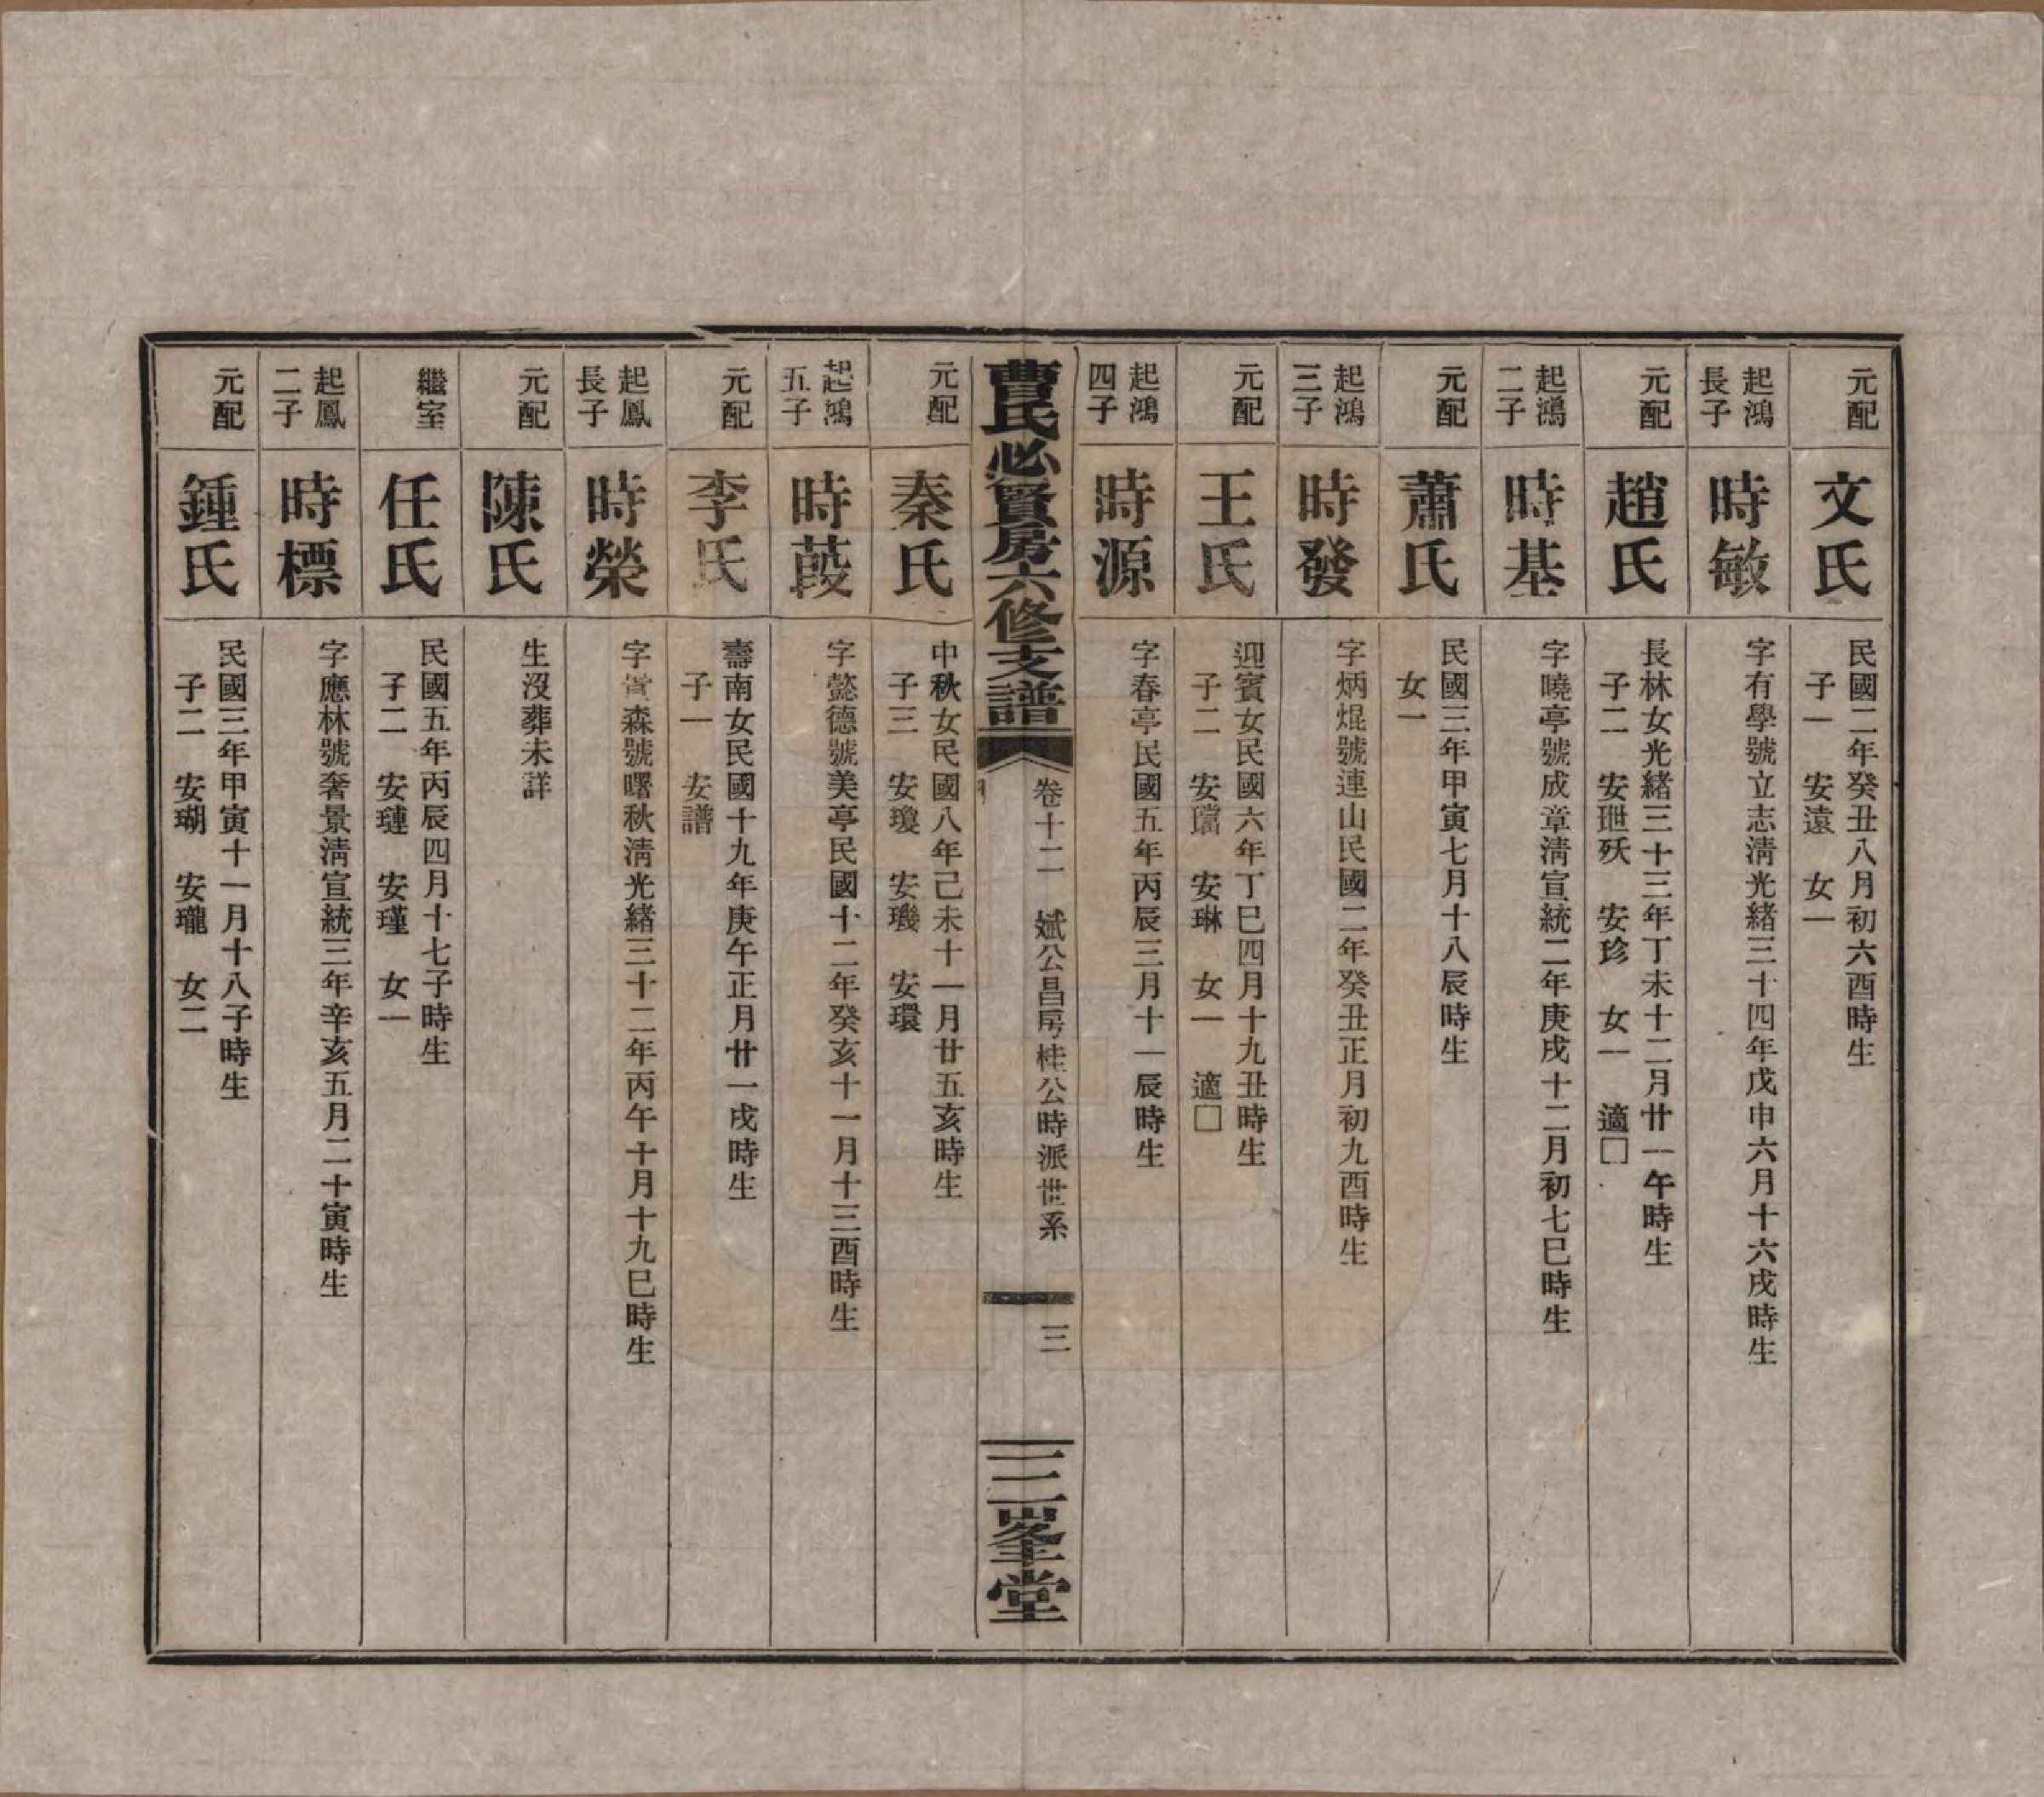 元配
文氏
民國二年癸丑八月初六酉時生
子一　安遠　女一
起鴻
長子
時敏
字有學號立志淸光緒三十四年戊申六月十六戌時生
元配
趙氏
長林女光緒三十三年丁未十二月廿一午時生
子二　安玴殀　安珍　女一　適□
起鴻
二子
時基
字曉亭號成章淸宣統二年庚戌十二月初七巳時生
元配
蕭氏
民國三年甲寅七月十八辰時生
女一
起鴻
三子
時發
字炳焜號連山民國二年癸丑正月初九酉時生
元配
王氏
迎賓女民國六年丁巳四月十九丑時生
子二　安璫　安琳　女一　適□
起鴻
四子
時源
字春亭民國五年丙辰三月十一辰時生
曹氏必賢房六修支譜
卷十二　斌公昌房桂公時派世系
三
三峯堂
元配
秦氏
中秋女民國八年己未十一月廿五亥時生
子三　安瓊　安璣　安環
起鴻
五子
時葮
字懿德號美亭民國十二年癸亥十一月十三酉時生
元配
李氏
壽南女民國十九年庚午正月廿一戌時生
子一　安譜
起鳳
長子
時榮
字森號曙秋淸光緒三十二年丙午十月十九巳時生
元配
陳氏
生沒葬未詳
繼室
任氏
民國五年丙辰四月十七子時生
子二　安璉　安瑾　女一
起鳳
二子
時標
字應林號奢景淸宣統三年辛亥五月二十寅時生
元配
鍾氏
民國三年甲寅十一月十八子時生
子二　安瑚　安瓏　女二